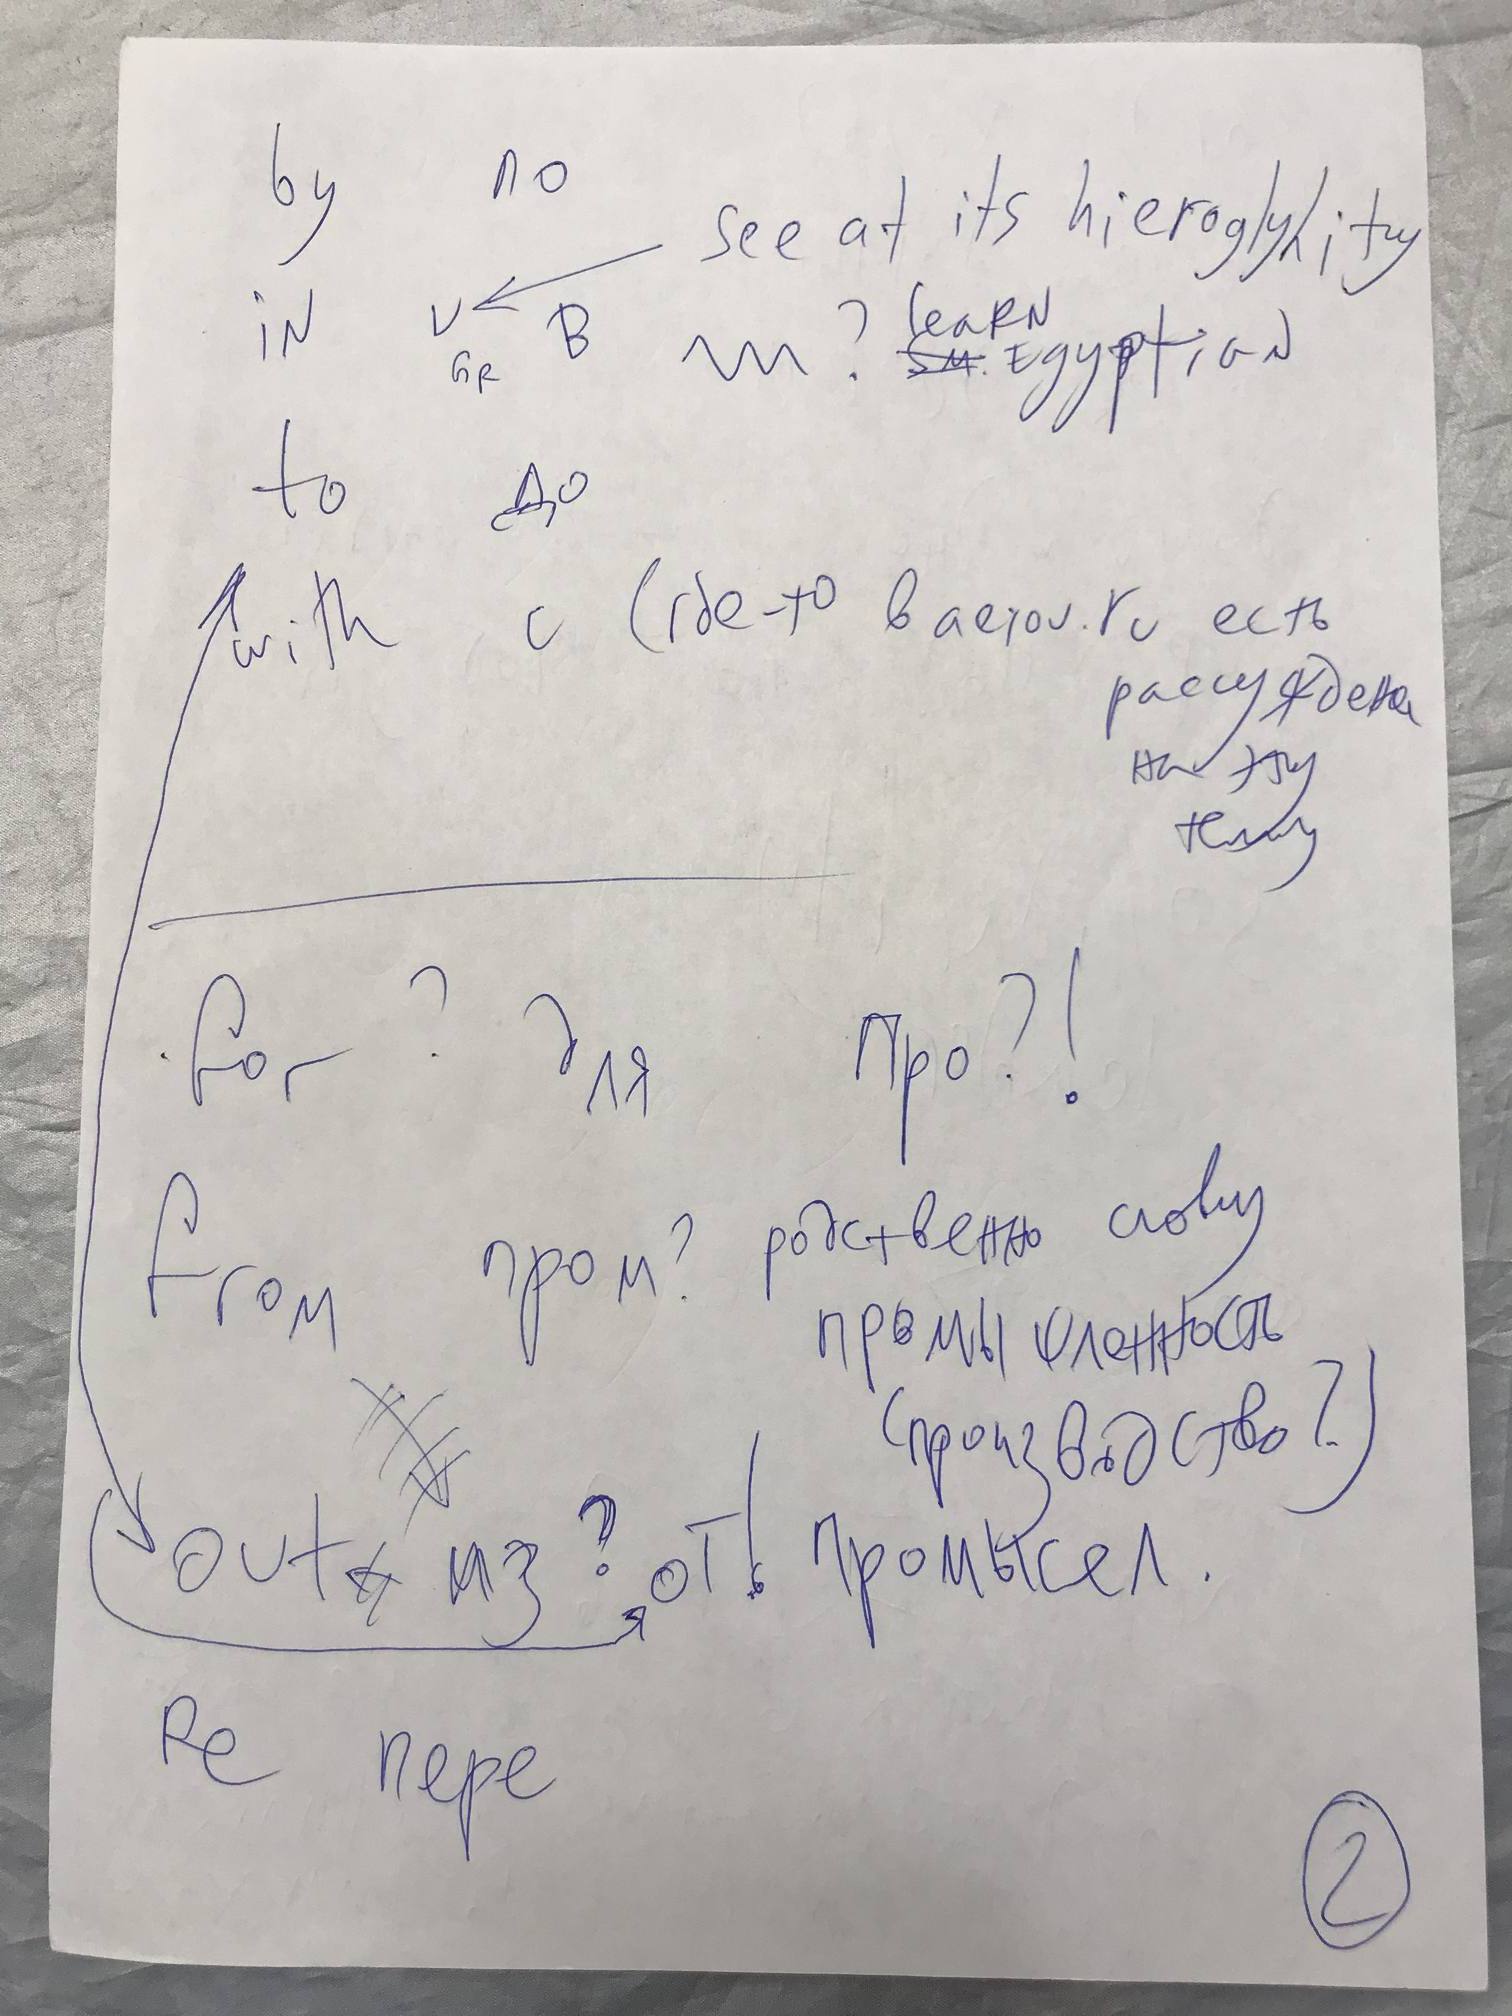 by по
see at its hieroglyhity
in ν В ? learn
GR см. Egyptian
to до
with с (где-то в aeiou.ru есть
рассуждения
на эту
тему
for ? для про?!
from пром? родственно слову
промышленность
(производство?)
out из ? от! промысел.
Re пере
2